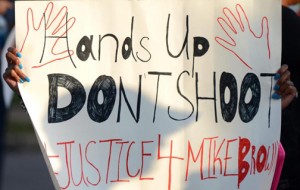 Hands Up
DON'T SHOOT
#JUSTICE 4 MIKE BROWN